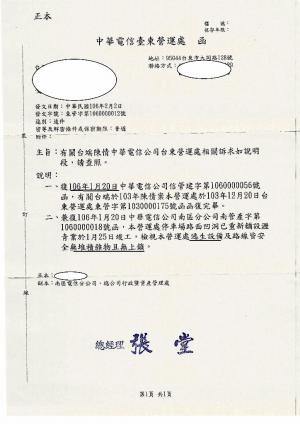 正本
檔　號：
保存年限：
中華電信臺東營運處　函
地址：95044台東市大同路128號
聯絡方式：
發文日期：中華民國106年2月2日
發文字號：東管字第1060000012號
速別：速件
密等及解密條件或保密期限：普通
附件：
主旨：有關台端陳情中華電信公司台東營運處相關訴求如說明
段，請查照。
說明：
一、復106年1月20日中華電信公司信管建字第1060000056號
函，有關台端於103年陳情案本營運處於103年12月20日台
東營運處東管字第1030000175號函函復完畢。
二、兼復106年1月20日中華電信公司南區分公司南管產字第
1060000018號函，本營運處停車場路面凹洞已重新鋪設瀝
青業於1月25日竣工。檢視本營運處逃生設備及路線皆安
全無堆積雜物且無上鎖。
訂
線
正本：
副本：南區電信分公司、總公司行政暨資產管理處
總經理 張堂
第1頁 共1頁